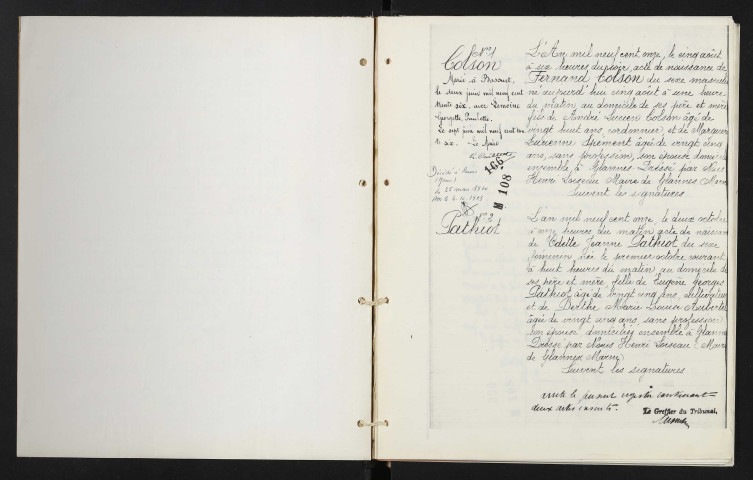 N° 1
Colson
Marié à
le deux juin mil neuf cent
trente six, avec Lemoine
Georgette Paulette.
Le sept juin mil neuf cent
six. Le Maire
166
M 108
L'An mil neuf cent onze, le cinq août
à six heures du soir, acte de naissance de
Fernand Colson du sexe masculin
né aujourd'hui cinq août à une heure
du matin, au domicile de ses père et mère
fils de André Lucien Colson âgé de
vingt huit ans, cordonnier, et de
Lucienne âgée de vingt cinq
ans, sans profession, son épouse
ensemble à Glannes. Dressé par Nous
Henri Loiseau Maire de Glannes Marne
Suivent les signatures
N° 2
Pathiot
L'an mil neuf cent onze, le deux octobre
à onze heures du matin acte de
de Odette Jeanne Pathiot du sexe
féminin née le premier octobre courant
à huit heures du matin au domicile de
ses père et mère, fille de Eugène Georges
Pathiot âgé de vingt cinq ans,
et de Berthe Marie Louise
âgée de vingt cinq ans, sans profession
son épouse domiciliés ensemble à
Dressé par Nous Henri Loiseau Maire
de Glannes Marne
Suivent les signatures
Arrêté le présent registre contenant
deux actes inscrits.
Le Greffier du Tribunal,